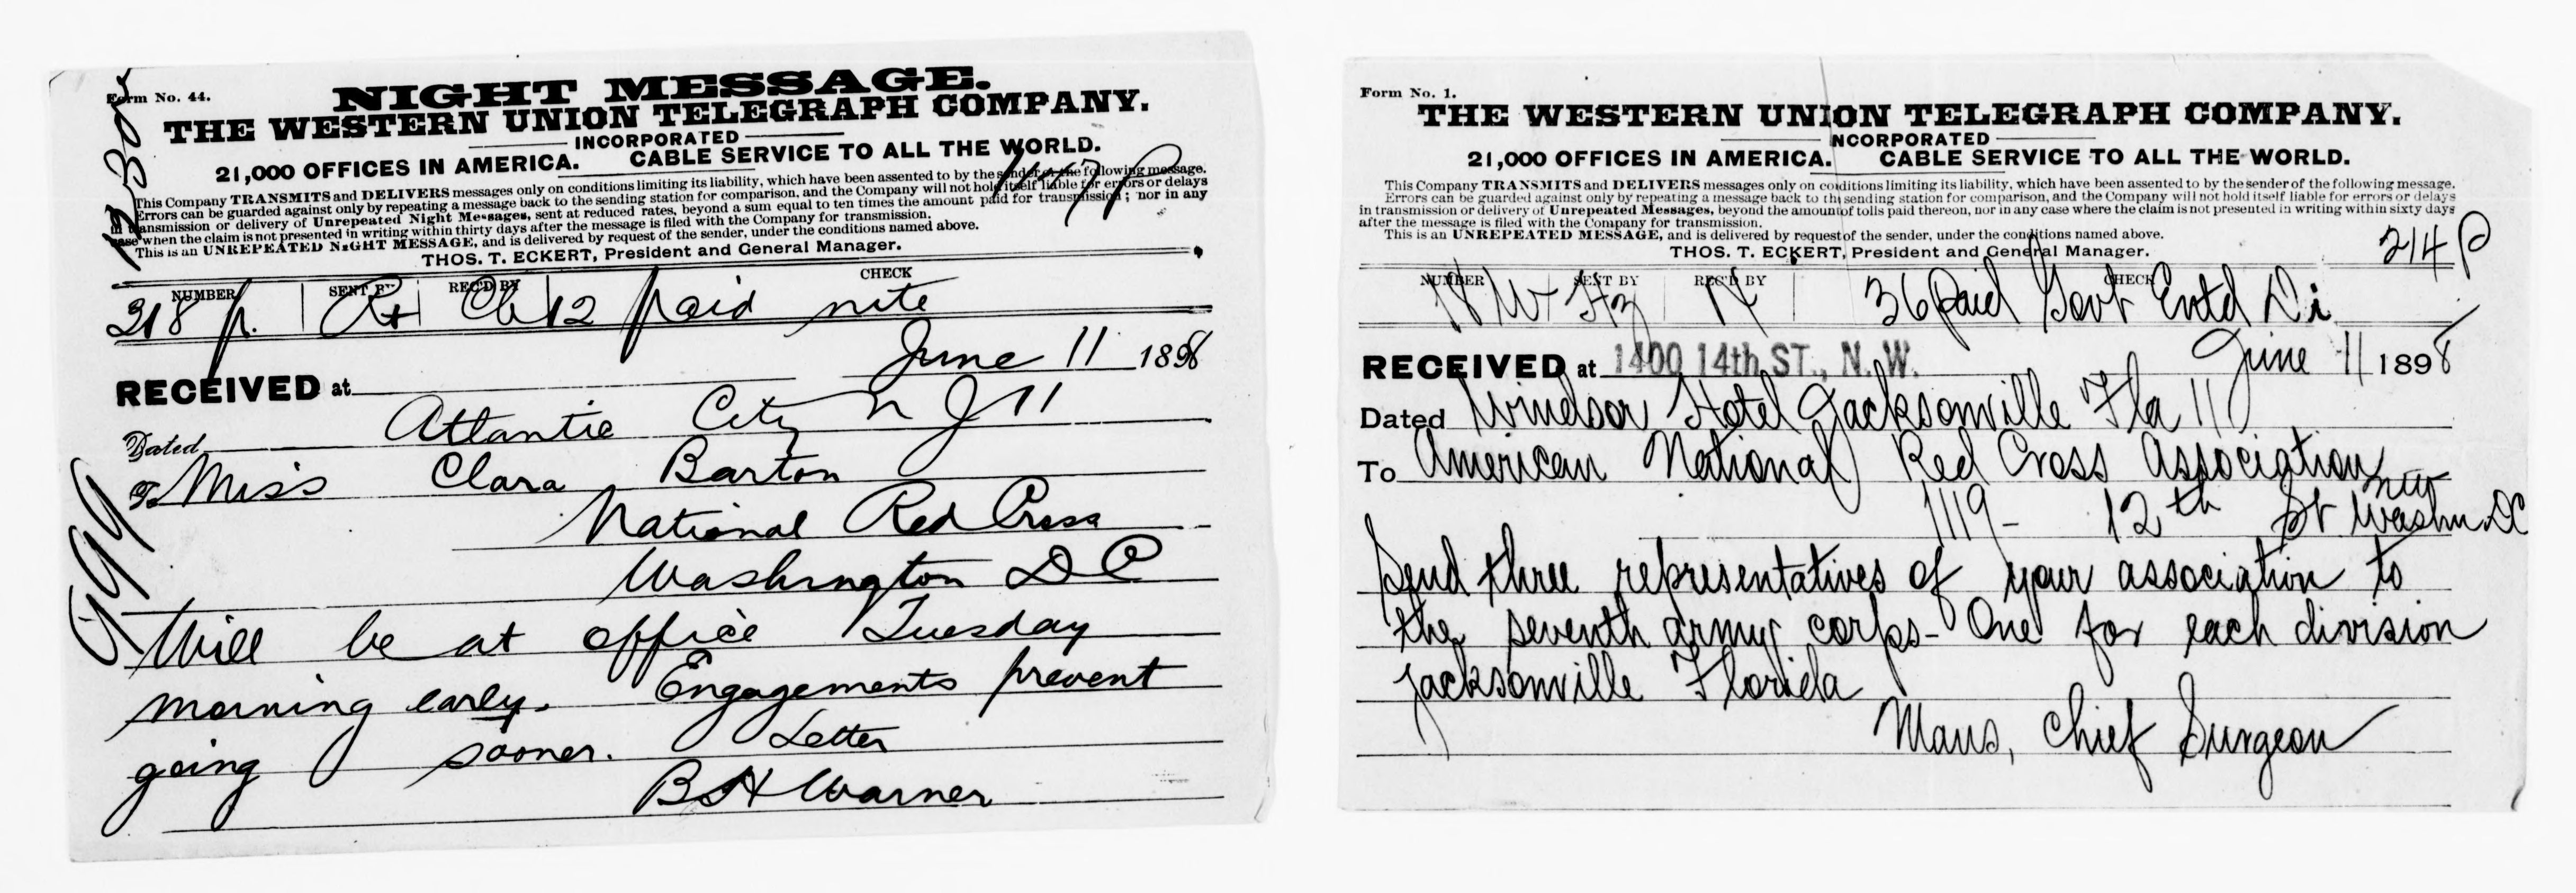 Form No. 44.
NIGHT MESSAGE.
THE WESTERN UNION TELEGRAPH COMPANY.
INCORPORATED
21,000 OFFICES IN AMERICA. CABLE SERVICE TO ALL THE WORLD.
This Company TRANSMITS and DELIVERS messages only on conditions limiting its liability, which have been assented to by the sender of the following message.
Errors can be guarded against only by repeating a message back to the sending station for comparison, and the Company will not hold itself liable for errors or delays
in transmission or delivery of Unrepeated Night Messages, sent at reduced rates, beyond a sum equal to ten times the amount paid for transmission; nor in any
case when the claim is not presented in writing within thirty days after the message is filed with the Company for transmission.
This is an UNREPEATED NIGHT MESSAGE, and is delivered by request of the sender, under the conditions named above.
THOS. T. ECKERT, President and General Manager.
NUMBER SENT BY REC'D BY CHECK
318 12 paid nite
June 11 1898
RECEIVED at
Dated Atlantic City N J 11
To Miss Clara Barton
National Red Cross
Washington D C
Will be at office Tuesday
morning early. Engagements prevent
going sooner. Letter
B H Warner
Form No. 1.
THE WESTERN UNION TELEGRAPH COMPANY.
INCORPORATED
21,000 OFFICES IN AMERICA. CABLE SERVICE TO ALL THE WORLD.
This Company TRANSMITS and DELIVERS messages only on conditions limiting its liability, which have been assented to by the sender of the following message.
Errors can be guarded against only by repeating a message back to the sending station for comparison, and the Company will not hold itself liable for errors or delays
in transmission or delivery of Unrepeated Messages, beyond the amount of tolls paid thereon, nor in any case where the claim is not presented in writing within sixty days
after the message is filed with the Company for transmission.
This is an UNREPEATED MESSAGE, and is delivered by request of the sender, under the conditions named above.
THOS. T. ECKERT, President and General Manager.
214 P
NUMBER SENT BY REC'D BY CHECK
18 W 36 Paid Govt
RECEIVED at 1400 14th ST., N. W. June 11 1898
Dated Windsor Hotel Jacksonville Fla 11
To American National Red Cross Association
1119- 12th St NW Washn DC
Send three representatives of your association to
the seventh army corps- One for each division
Jacksonville Florida
Maus, Chief Surgeon